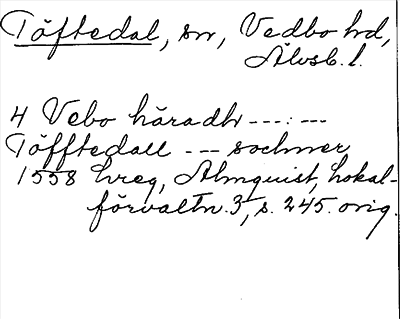 Töftedal, sn, Vedbo hd,
Älvsb. l.
4 Vebo häradh ---:---
Töfftedall --- sochner
1558 hreg, Almquist, Lokal-
förvaltn. 3, s. 245. orig.